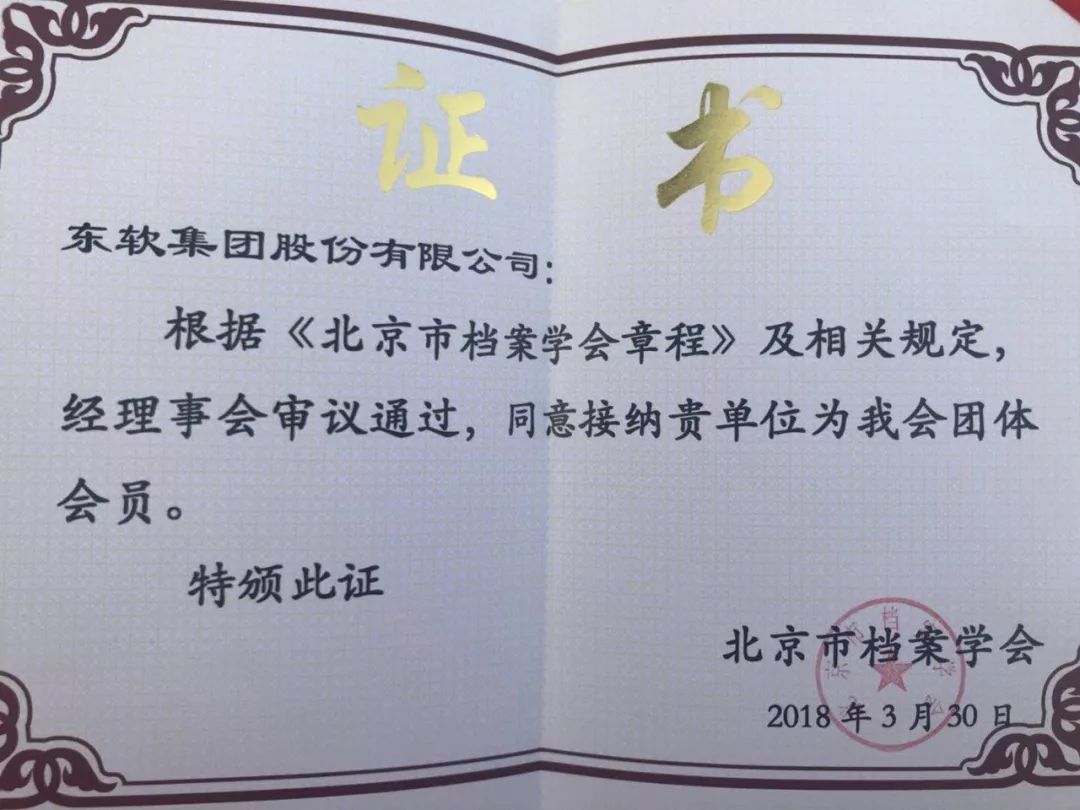 证书
东软集团股份有限公司：
根据《北京市档案学会章程》及相关规定，
经理事会审议通过，同意接纳贵单位为我会团体
会员。
特颁此证
北京市档案学会
2018 年 3 月 30 日